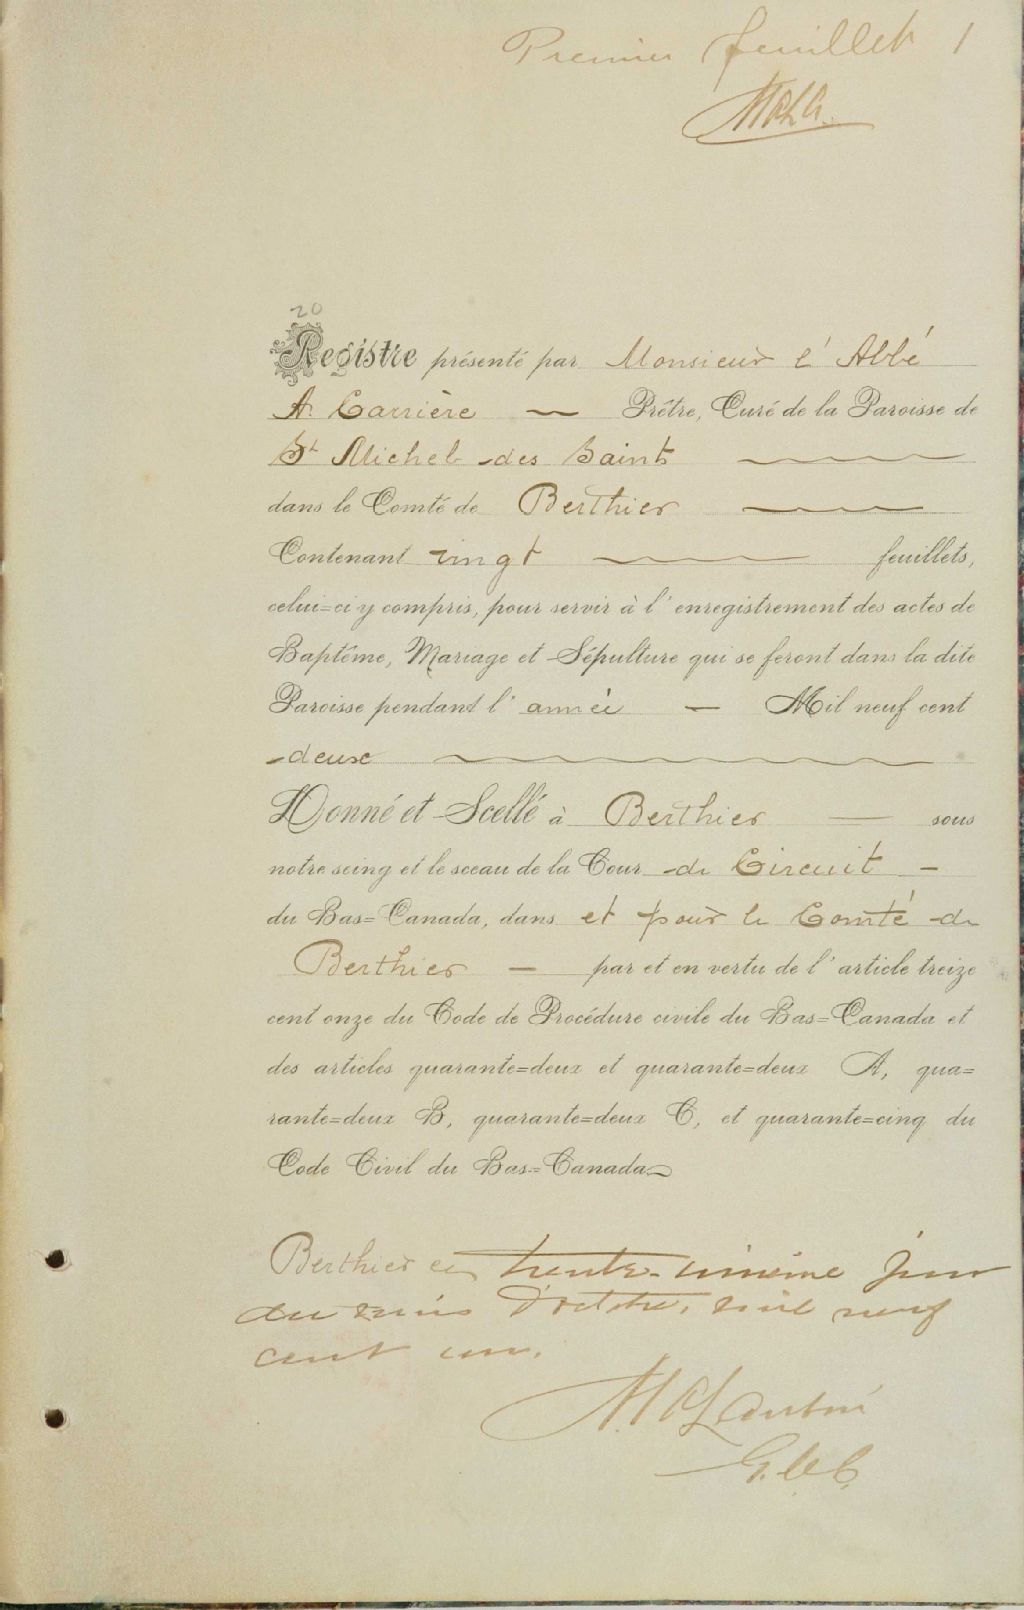 Premier feuillet 1
20
Registre présenté par Monsieur l'Abbé
A. Carrière — Prêtre, Curé de la Paroisse de
St Michel des Saints
dans le Comté de Berthier
Contenant vingt feuillets,
celui=ci y compris, pour servir à l'enregistrement des actes de
Baptême, Mariage et Sépulture qui se feront dans la dite
Paroisse pendant l'année — Mil neuf cent
deux
Donné et Scellé à Berthier — sous
notre seing et le sceau de la Cour de Circuit —
du Bas=Canada, dans et pour le Comté de
Berthier — par et en vertu de l'article treize
cent onze du Code de Procédure civile du Bas=Canada et
des articles quarante=deux et quarante=deux A, qua=
rante=deux B, quarante=deux C, et quarante=cinq du
Code Civil du Bas=Canada
Berthier ce trente-unième jour
du mois d'octobre, mil neuf
cent un.